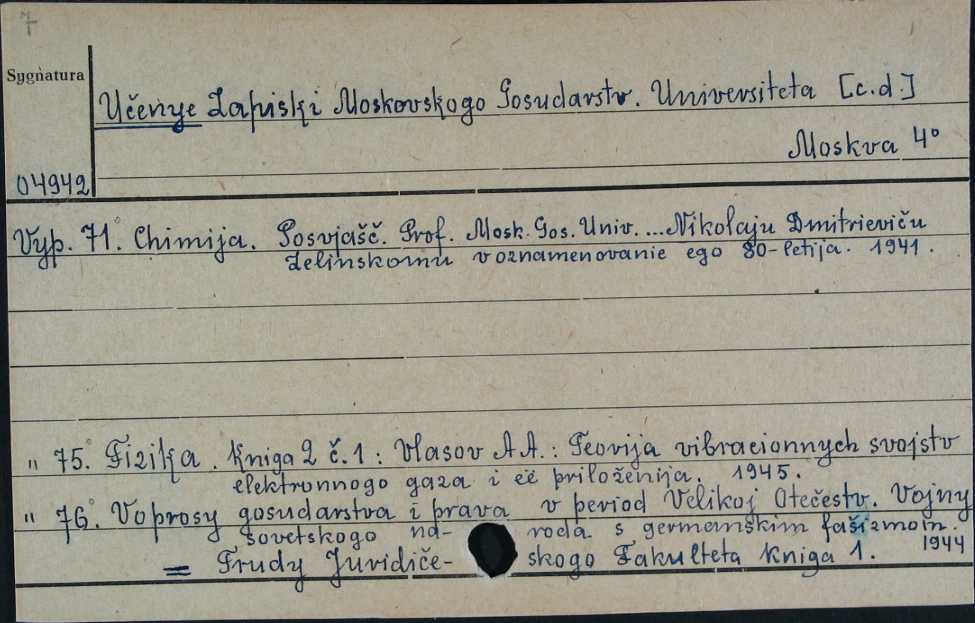 7
Sygnatura
Učenye Zapiski Moskovskogo Gosudarstv. Universiteta [c.d.]
Moskva 4°
04942
Vyp. 71. Chimija. Posvjašč. Prof. Mosk. Gos. Univ. ... Nikolaju Dmitrieviču
Zelinskomu v oznamenovanie ego 80-letija. 1941.
" 75. Fizika. Kniga 2 č. 1: Vlasov A.A.: Teorija vibracionnych svojstv
elektronnogo gaza i eë priloženija. 1945.
" 76. Voprosy gosudarstva i prava v period Velikoj Otečestv. Vojny
sovetskogo na- roda s germanskim fašizmom.
= Trudy Juridiče- skogo Fakulteta Kniga 1. 1944